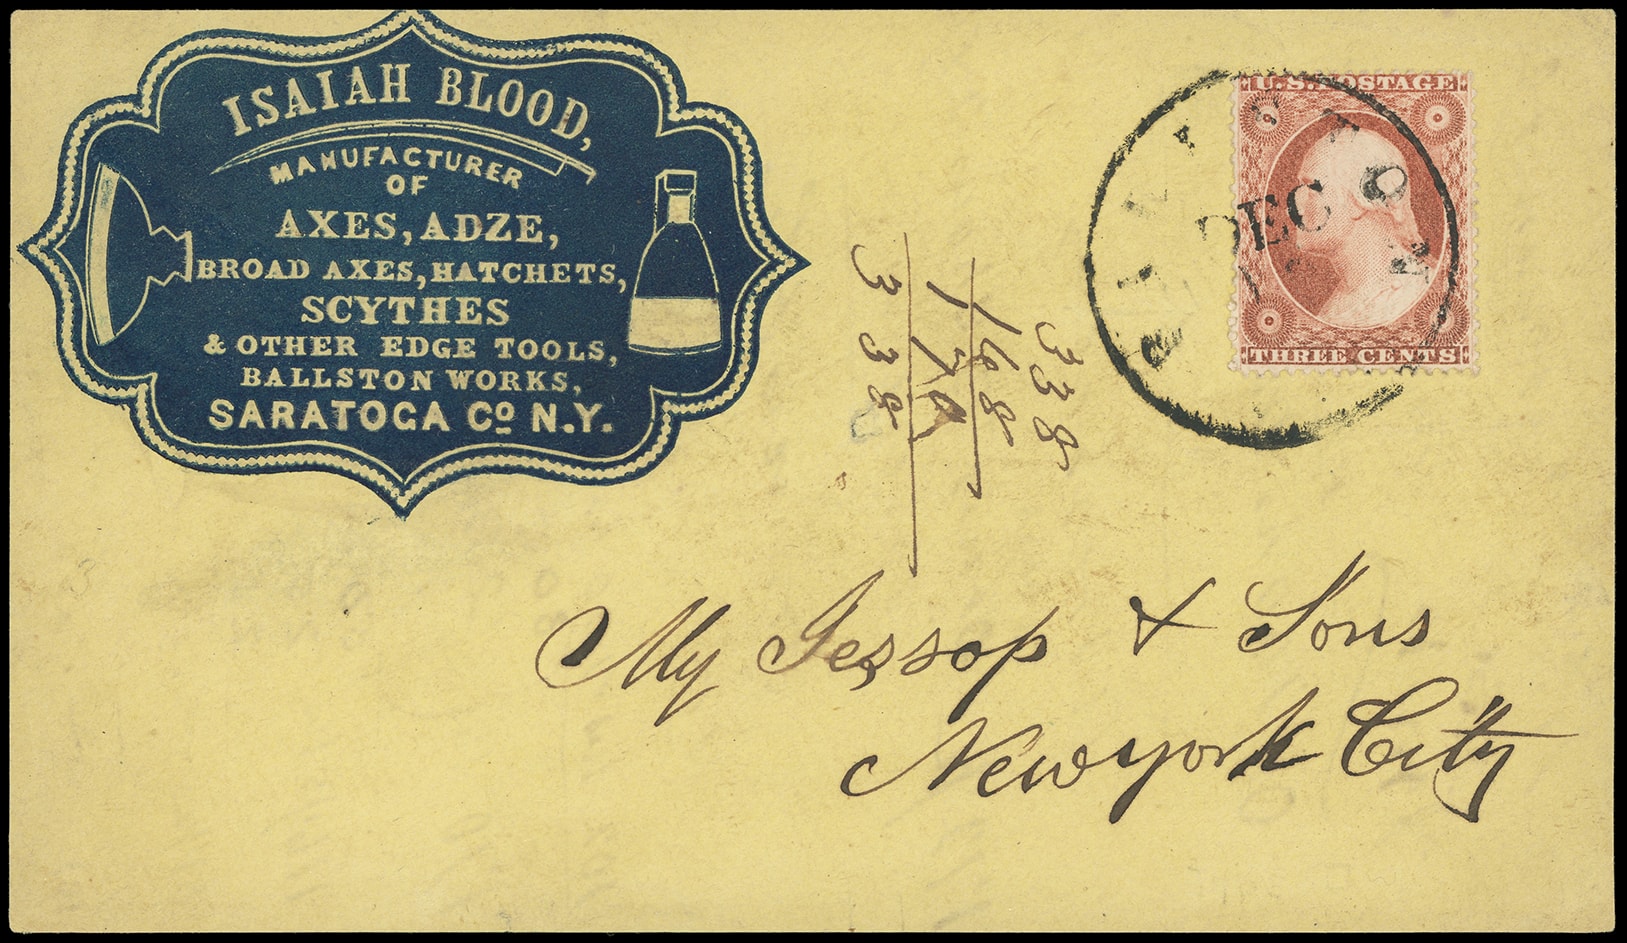 ISAIAH BLOOD,
MANUFACTURER
OF
AXES, ADZE,
BROAD AXES, HATCHETS,
SCYTHES
& OTHER EDGE TOOLS,
BALLSTON WORKS,
SARATOGA Co N.Y.
U.S. POSTAGE
DEC
THREE CENTS
338
168
170
338
My Jessop & Sons
New york City